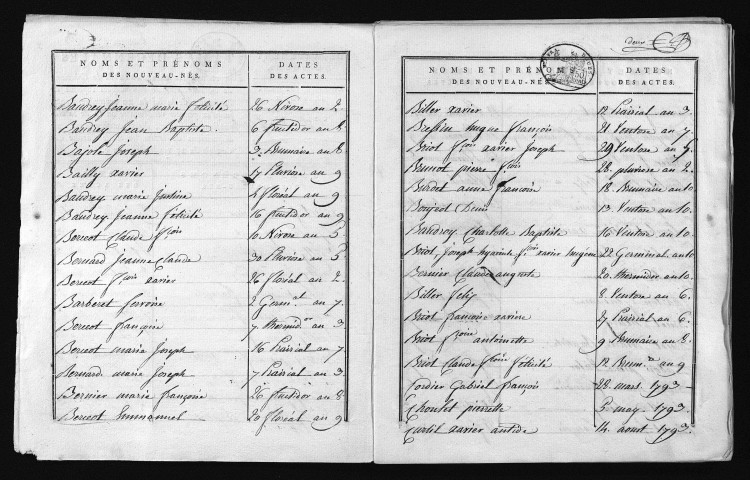 NOMS ET PRÉNOMS DES NOUVEAU-NÉS.
DATES DES ACTES.
Baudrey jeanne marie félicité 26 Nivose an 2.
Baudrey Jean Baptiste. 6 fructidor an 8
Bajolé Joseph 3 Brumaire an 8
Bailly xavier 17 Pluviose an 9
Baudrey marie Justine 4 floréal an 9
Baudrey Jeanne félicité 16 fructidor an 9
Bercot Claude fçois 10 Nivose an 5
Bernard jeanne Claude 30 Pluviose an 5
Bercot fçois xavier 26 floréal an 2.
Barberet 2 Germal an 7.
Bercot françoise 7 thermidor an 3
Bercot marie Joseph 16 Prairial an 7
Bernard marie Joseph 7 Prairial an 3
Bernier marie françoise 26 fructidor an 8
Bercot Emmanuel 20 floréal an 9
NOMS ET PRÉNOMS DES NOUVEAU-NÉS.
DATES DES ACTES.
Biller xavier 12 Prairial an 3.
hugue françois 21 Ventose an 7.
Briot fçois xavier Joseph 29 Ventose an 7.
Brunot pierre fçois 28. pluviose an 2.
Burdet anne françoise 18. Brumaire an 10.
Bonjeol Denis 13. Ventose an 10.
Baudroy Charlotte Baptiste 16 Ventose an 10.
Briot, Joseph hyacinte fçois xavier hugene 22 Germinal an 10
Bernier Claude auguste 20 thermidor an 10.
Biller felix 8. Ventose an 6.
Briot françoise xavière 27 Prairial an 6.
Briot fçoise antoinette 9 Brumaire an 8.
Briot Claude fçoise félicité 12 Brumre an 9
Cordier Gabriel françois 28. mars 1793
Choulet pierrette 5 may. 1793.
Curtil xavier antide 14. aout 1793.